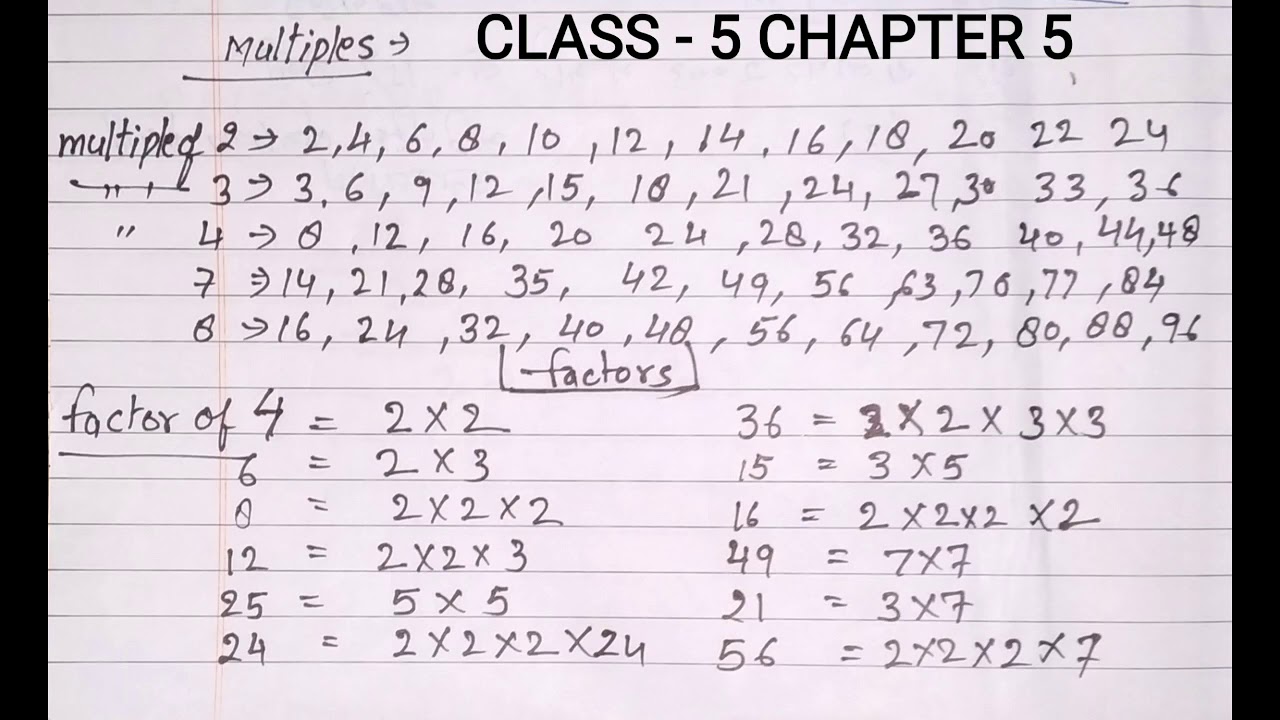 Multiples → CLASS - 5 CHAPTER 5
multiple of 2 → 2, 4, 6, 8, 10, 12, 14, 16, 18, 20 22 24
〃 3 → 3, 6, 9, 12, 15, 18, 21, 24, 27, 30 33, 36
〃 4 → 8, 12, 16, 20 24, 28, 32, 36 40, 44, 48
7 → 14, 21, 28, 35, 42, 49, 56, 63, 70, 77, 84
8 → 16, 24, 32, 40, 48, 56, 64, 72, 80, 88, 96
factors
factor of 4 = 2 × 2
6 = 2 × 3
8 = 2 × 2 × 2
12 = 2 × 2 × 3
25 = 5 × 5
24 = 2 × 2 × 2 × 24
36 = 2 × 2 × 3 × 3
15 = 3 × 5
16 = 2 × 2 × 2 × 2
49 = 7 × 7
21 = 3 × 7
56 = 2 × 2 × 2 × 7